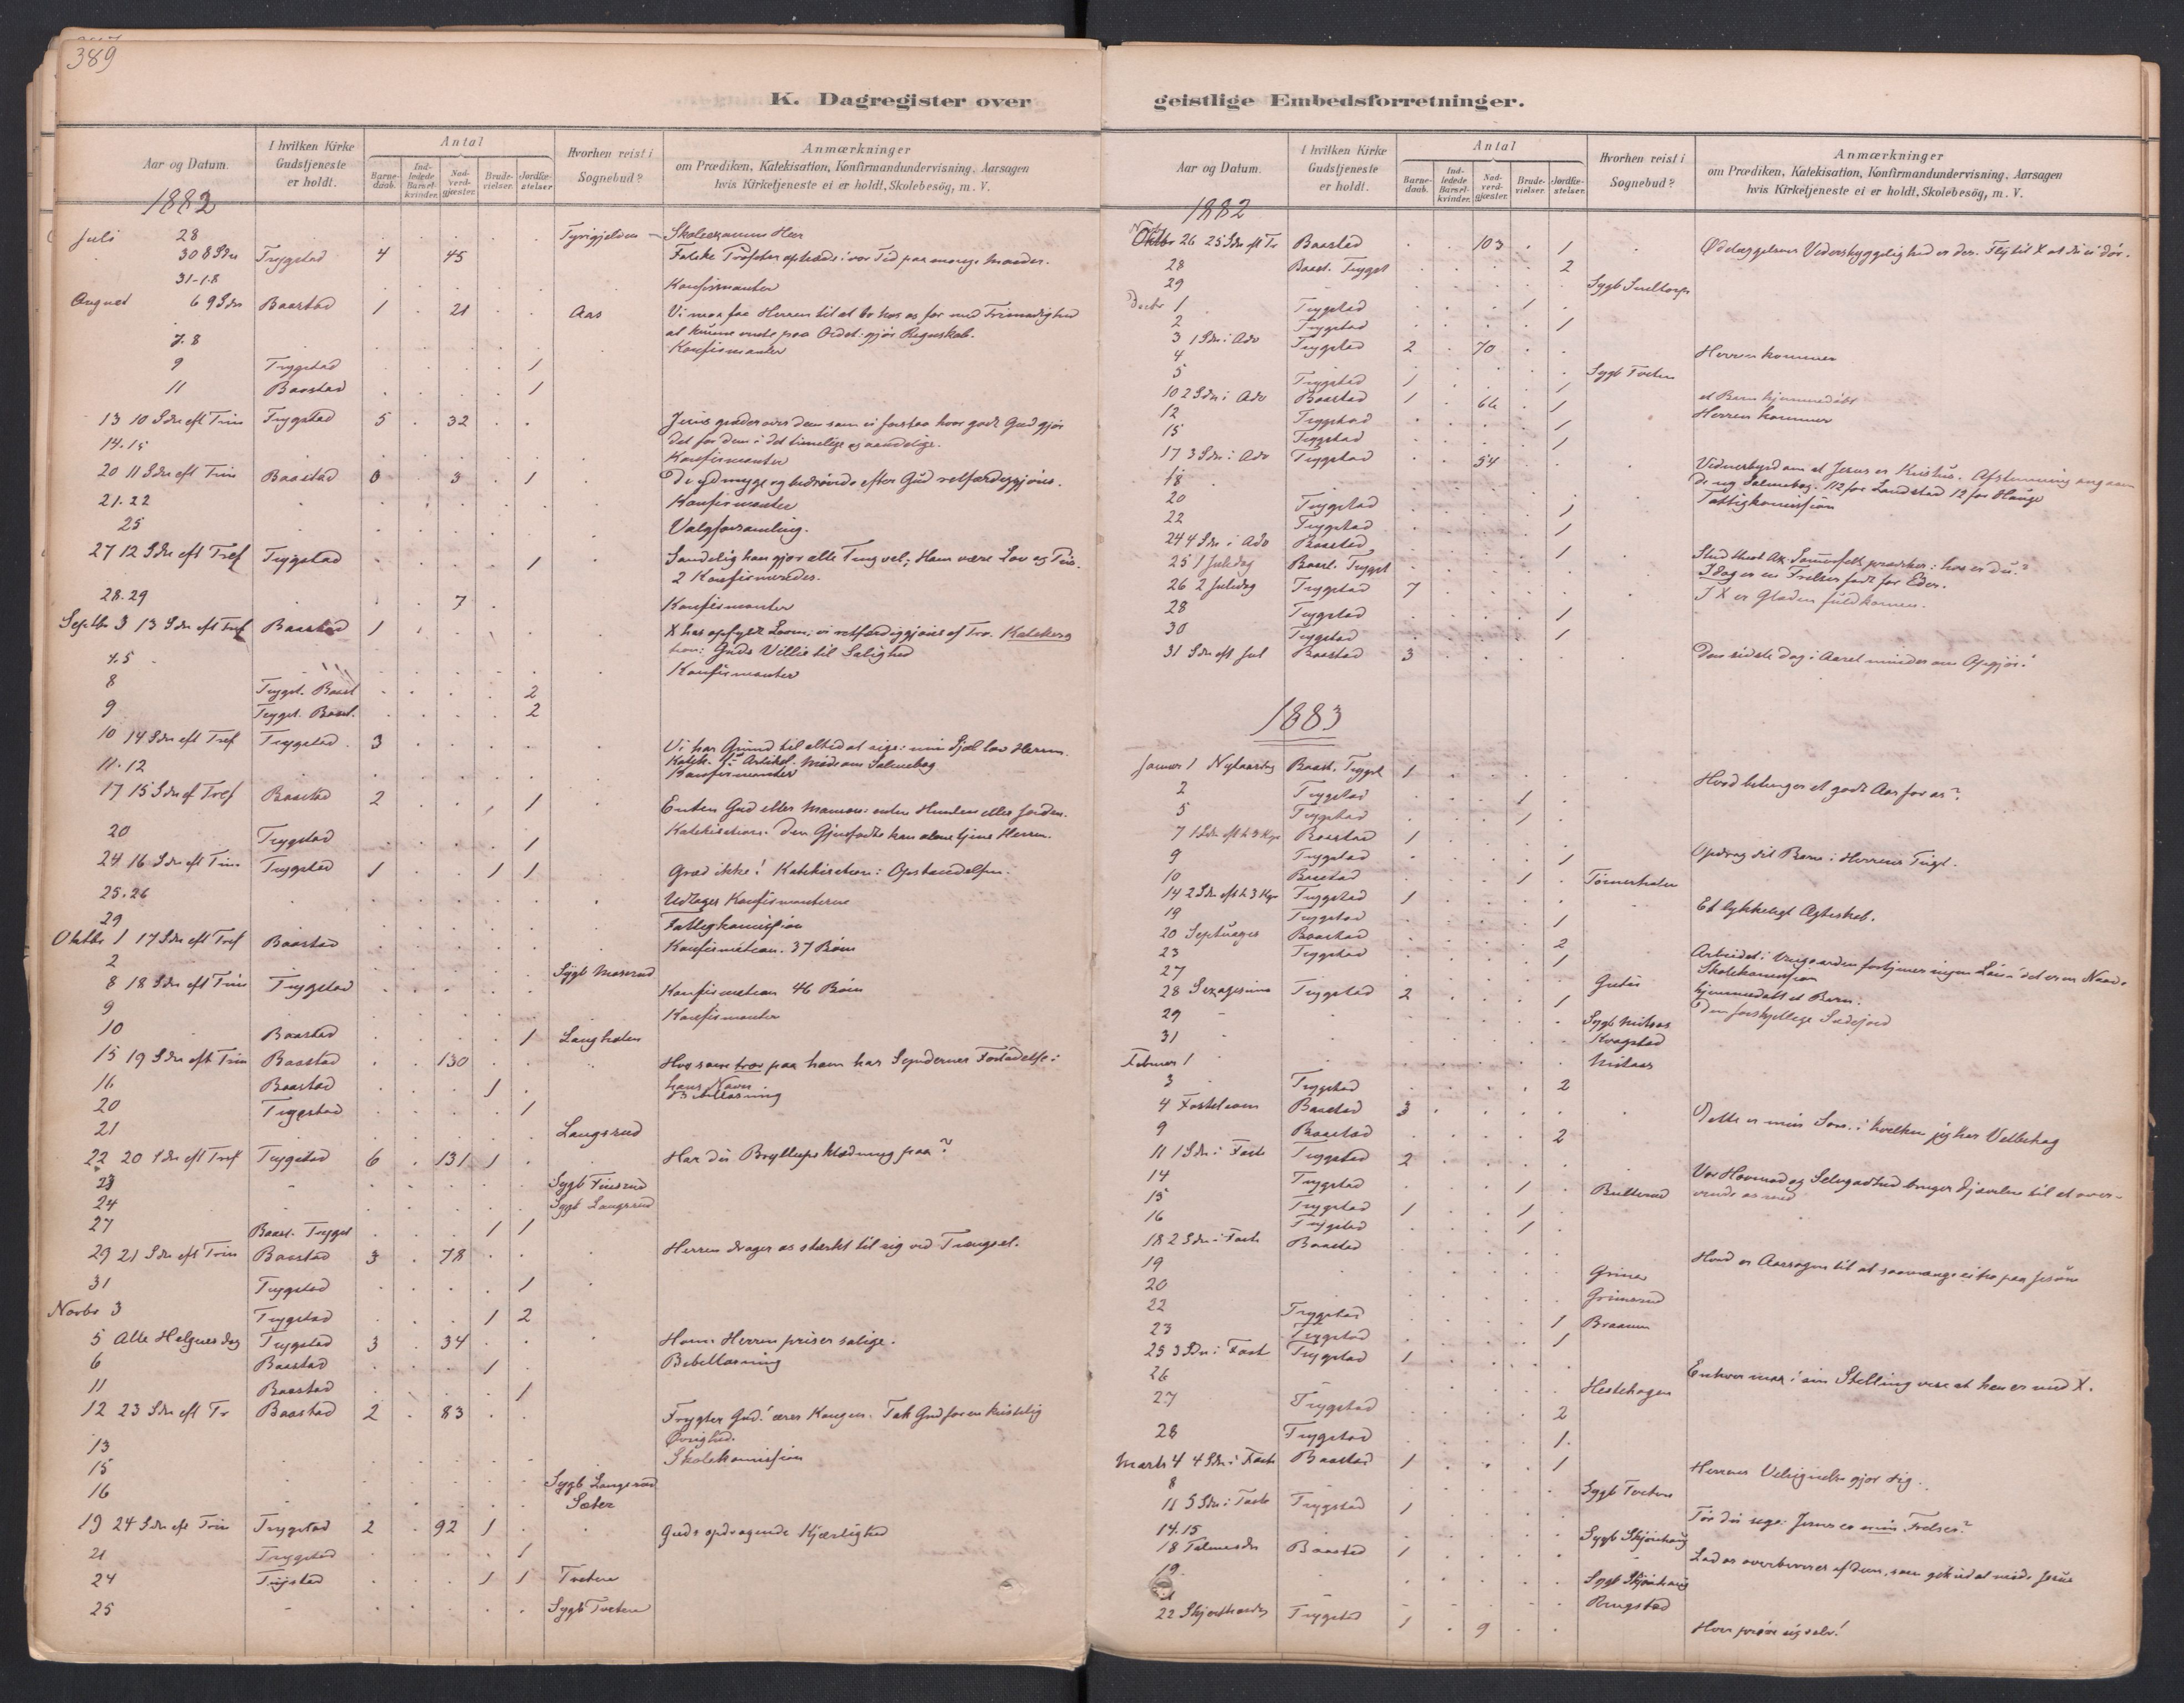 389
K. Dagregister over
Aar og Datum.
I hvilken Kirke Gudstjeneste er holdt.
Antal
Barne-daab.
Ind-ledede Barsel-kvinder.
Nad-verd-gjæster.
Brude-vielser.
Jordfæ-stelser
Hvorhen reist i Sognebud?
Anmærkninger
om Prædiken, Katekisation, Konfirmandundervisning, Aarsagen
hvis Kirketjeneste ei er holdt, Skolebesög, m. V.
1882
Juli 28 Skoleexamen Heer
30 8 Sdn Trygstad 4 45 Falske Profeter optræde i vor Tid paa mange Maader.
31-1.8 Konfirmanter
August 6 9 Sdn Baastad 1 21 Aas Vi maa faa Herren til at bo hos os for med Frimodighed
at kunne vente paa Ordet: gjør Regnskab.
7.8 Konfirmanter
9 Trygstad 1
11 Baastad 1
13 10 Sdn eft Trin Trygstad 5 32 Jesus græder over dem som ei forstaa hvor godt Gud gjør
det for dem i det timelige og aandelige.
14.15 Konfirmanter
20 11 Sdn eft Trin Baastad 0 3 1 De ydmyge og bedrøvede efter Gud retfærdiggjøres.
21.22 Konfirmanter
25 Valgforsamling.
27 12 Sdn eft Tref Trygstad 1 Sandelig han gjør alle Ting vel; Ham være Lov og Pris.
2 Konfirmeredes.
28.29 7 Konfirmanter
Septbr 3 13 Sdn eft Tref Baastad 1 X har opfyldt Loven; vi retfærdiggjøres af Tro. Katekisa
tion: Guds Villie til Salighed
4.5 Konfirmanter
8 Trygst. Baast 2
9 Trygst. Baast. 2
10 14 Sdn eft Tref Trygstad 3 Vi har Grund til altid at sige: min Sjæl lov Herren.
Katek. 1ste Artikel. Møde om Salmebog
11.12 Konfirmanter
17 15 Sdn ef Tref Baastad 2 1 Enten Gud eller Mammon: enten Himlen eller Jorden.
Katekisation. Den Gjenfødte kan alene tjene Herren.
20 Trygstad 1
24 16 Sdn eft Trin Trygstad 1 1 1 Græd ikke! Katekisation: Opstandelsen.
25.26 Udtages Konfirmanterne
29 Fattigkomission
Oktbr 1 17 Sdn eft Tref Baastad Konfirmation. 37 Børn
2 Sygb Mosrud
8 18 Sdn eft Trin Trygstad Konfirmation 46 Børn
9 Konfirmanter
10 Baastad 1 Langholen
15 19 Sdn eft Trin Baastad 130 Hvo som tror paa ham har Syndernes Forladelse i
hans Navn.
16 Baastad 1 Bibellæsning
20 Trygstad 1
21 Langsrud
22 20 Sdn eft Tref Trygstad 6 131 1 Har du Bryllupsklædning paa?
23 Sygb Finsrud
24 Sygb Langsrud
27 Baast. Trygst 1 1
29 21 Sdn eft Trin Baastad 3 78 Herren drager os stærkt til sig ved Trængsel.
31 Trygstad 1
Novbr 3 Trygstad 1 2
5 Alle Helgenes dag Trygstad 3 34 Hvem Herren priser salige.
6 Baastad 1 Bibellæsning
11 Baastad 1
12 23 Sdn eft Tr Baastad 2 83 Frygter Gud! ærer Kongen. Tak Gud for en kristelig
Øvrighed.
13 Skolekomission
15 Sygb Langsrud
16 Sæter
19 24 Sdn eft Trin Trygstad 2 92 1 Guds opdragende Kjærlighed
21 Trygstad 1
24 Trygstad 1 1 Tveten
25 Sygb Tveten
geistlige Embedsforretninger.
Aar og Datum.
I hvilken Kirke Gudstjeneste er holdt.
Antal
Barne-daab.
Ind-ledede Barsel-kvinder.
Nad-verd-gjæster.
Brude-vielser.
Jordfæ-stelser
Hvorhen reist i Sognebud?
Anmærkninger
om Prædiken, Katekisation, Konfirmandundervisning, Aarsagen
hvis Kirketjeneste ei er holdt, Skolebesög, m. V.
1882
Novbr 26 25 Sdn eft Tr Baastad 103 1 Ødelæggelsens Vederstyggelighed er der. Fly til X at du ei dør.
28 Baast. Trygst 2
29 Sygb
Decbr 1 Trygstad 1
2 Trygstad 1
3 1 Sdn i Adv Trygstad 2 70 Herren kommer
4 Sygb Tveten
5 Trygstad 1 1 et Barn hjemmedøbt
10 2 Sdn i Adv Baastad 1 66 1 Herren kommer
12 Trygstad 1
15 Trygstad 1
17 3 Sdn i Adv Trygstad 54 Vidnesbyrd om at Jesus er Kristus. Afstemning angaaen
de ny Salmebog. 12 for Landstad 12 for Hauge
18 Fattigkomission
20 Trygstad 1
22 Trygstad 1
24 4 Sdn i Adv Baastad 1 Stud theol præker: hvo er du?
25 1 Juledag Baast. Trygst Idag er en Frelser født for Eder.
26 2 Juledag Trygstad 7 I X er Glæden fuldkommen.
28 Trygstad 1
30 Trygstad 1
31 Sdn eft Jul Baastad 3 Den sidste Dag i Aaret minder om Opgjør!
1883
Januar 1 Nytaarsdag Baast. Trygst 1 Hvad betinger et godt Aar for os?
2 Trygstad 1
5 Trygstad 1
7 1 Sdn eft h 3 Kgr Baastad 1 Opdrag dit Barn i Herrens Tugt.
9 Trygstad 1
10 Baastad 1 Tømerholen
14 2 Sdn eft h 3 Kgr Trygstad 1 Et lykkeligt Ægteskab.
19 Trygstad 1
20 Septuages Baastad 2 Arbeidet i Vingaarden fortjener ingen Løn: det er en Naade
23 Trygstad 1 Skolekomission
27 hjemmedøbt et Barn.
28 Sexagesima Trygstad 2 1 Den forskjellige Sædejord
29 Sygb
31 Kragstad
Februar 1
3 Trygstad 2
4 Fastelavn Baastad 3 Dette er min Søn, i hvilken jeg har Velbehag
9 Baastad 2
11 1 Sdn i Faste Trygstad 2 Vor Hovmod og Selvgodhed bruger Djævelen til at over-
vinde os med
14 Trygstad 1
15 Trygstad 1 1
16 Trygstad 1
18 2 Sdn i Faste Baastad Hvad er Aarsagen til at saamange ei tro paa Jesum
19
20 Grimsrud
22 Trygstad 1 Braanen
23 Trygstad 1
25 3 Sdn i Fast Trygstad 1 Enhver maa i sin Stilling vise at han er med X.
26 Hestehagen
27 Trygstad 2
28 Trygstad 1
Marts 4 4 Sdn i Faste Baastad 1 1 Herrens Velsignelse gjør rig.
8 Sygb Tveten
11 5 Sdn i Faste Trygstad 1 Tør du sige: Jesus er min Frelser?
14.15 Sygb Skjønhaug
18 Palmesdn Baastad 1 Lad os overbevises af dem, som gik ud at møde Jesus
19. Sygb Skjønhaug
22 Skjærthorsdag Trygstad 1 9 Hver prøve sig selv!